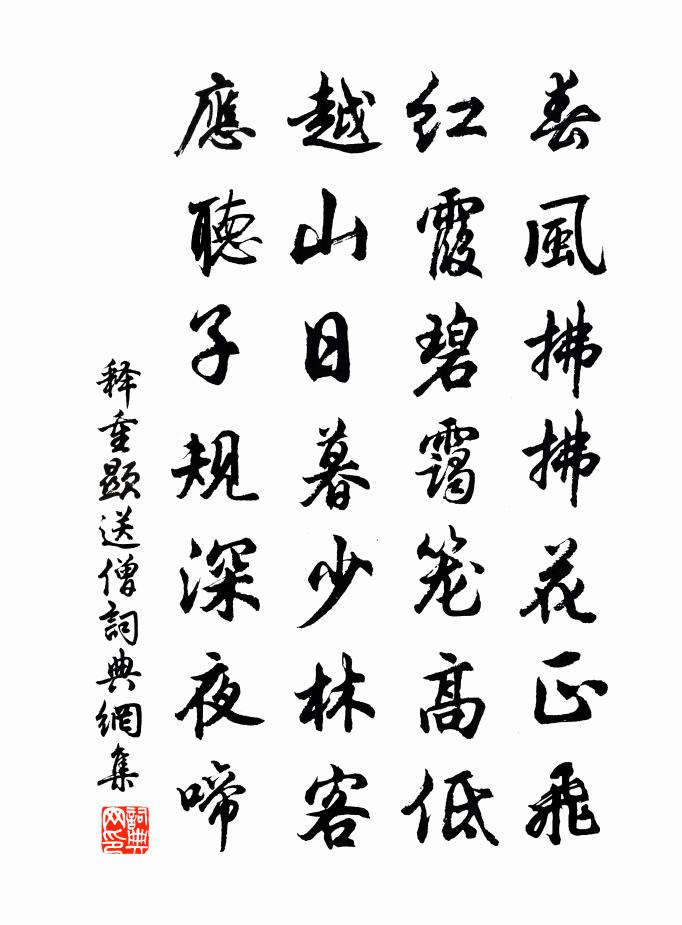 春風拂拂花正飛
紅霞碧靄笼高低
越山日暮少林客
應聽子規深夜啼
释重顯送僧詞典網集
詞典网印